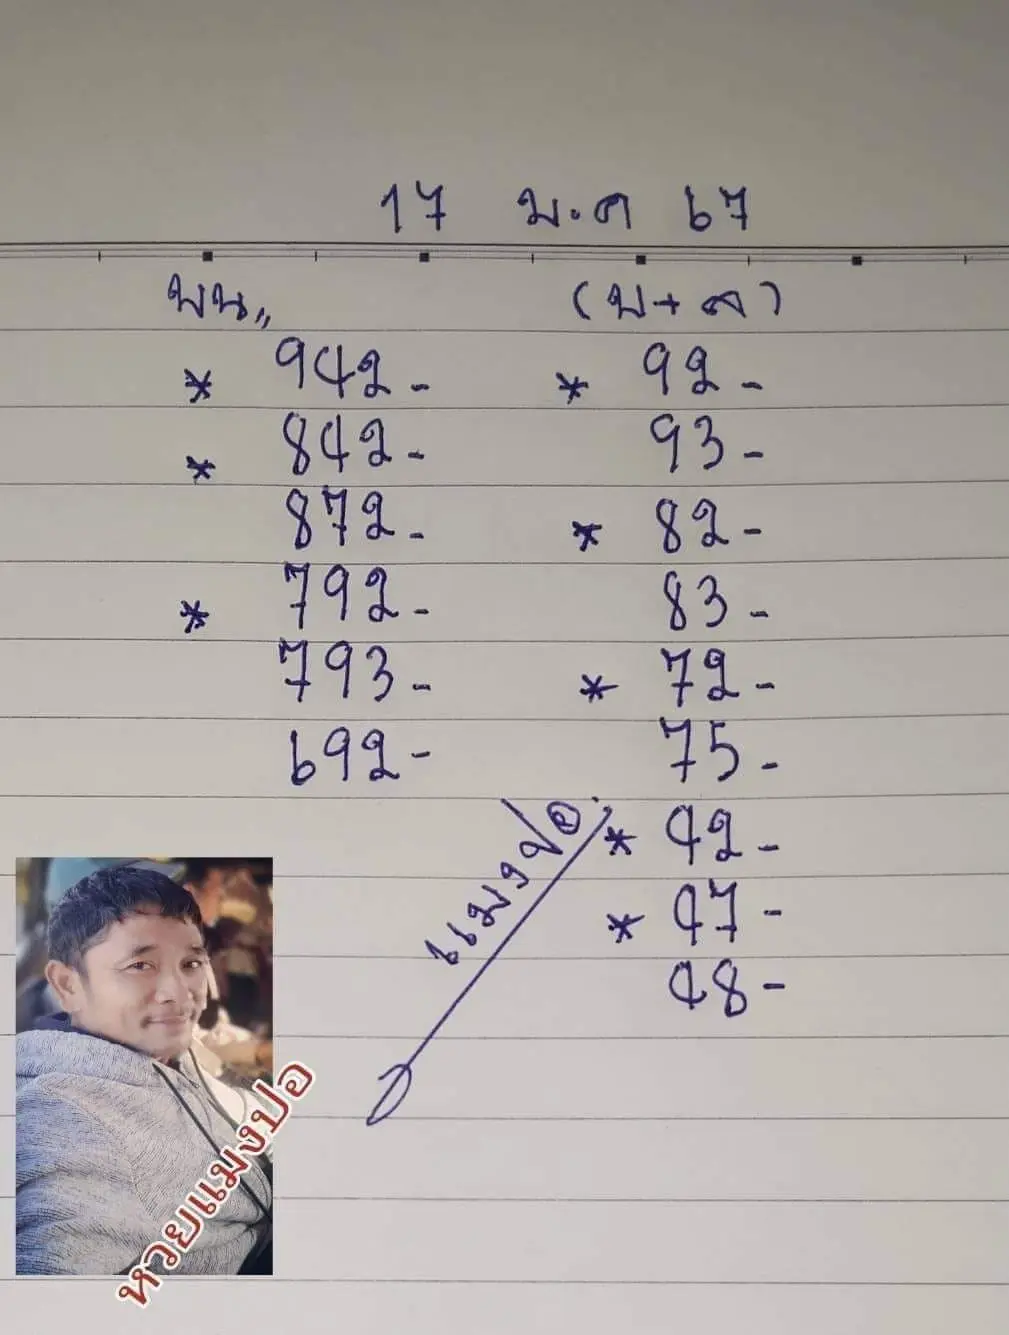 17 ม.ค 67
บน,,
* 942-
* 842-
872-
* 792-
793-
692-
(บ+ล)
* 92-
93-
* 82-
83-
* 72-
75-
* 42-
* 47-
48-
แมงปอ
หวยแมงปอ